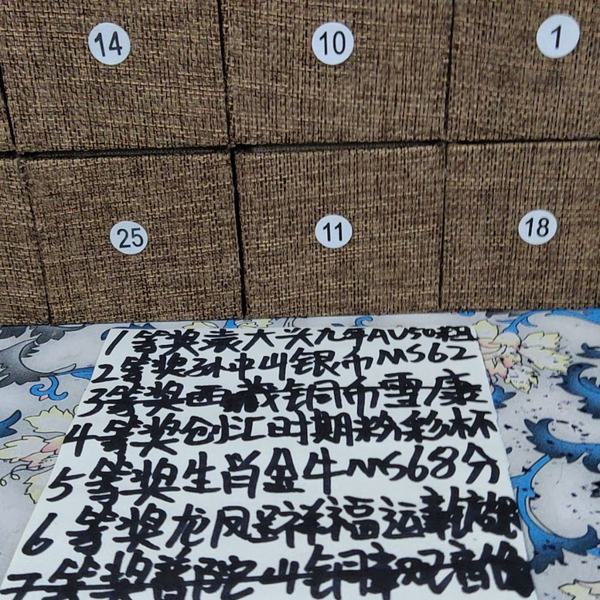 14 10 1
25 11 18
1等奖袁大头九年AU50粗
2等奖孙中山银币MS62
3等奖西藏铜币雪康
4等奖创汇时期粉彩杯
5等奖生肖金牛MS68分
6等奖龙凤呈祥福运
7等奖普陀山铜章观音